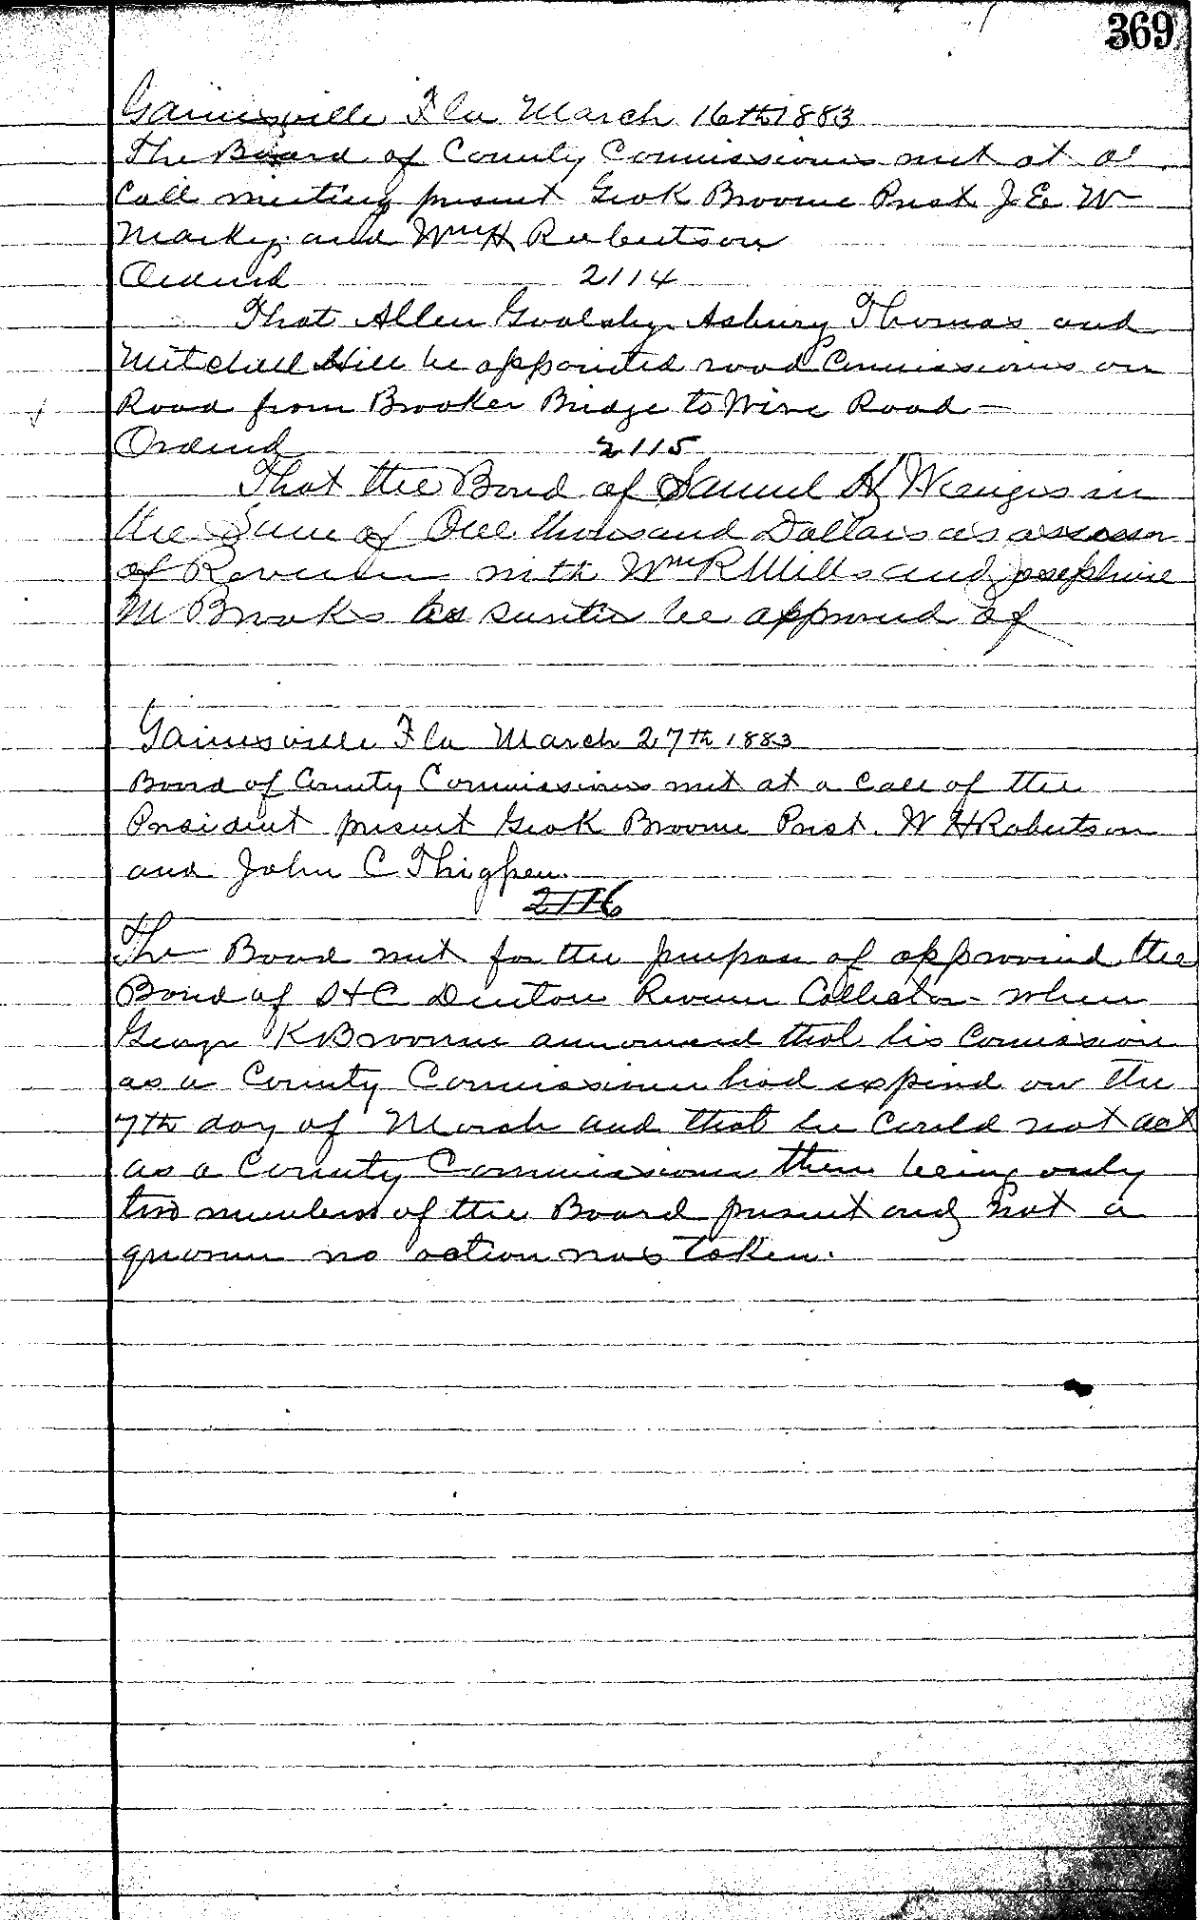 369
Gainesville Fla March 16th 1883
The Board of County Commissioners met at a
Call meeting present Geo K Broome Prest J. E. W
Markey and Wm H Robertson
Ordered 2114
That Allen Goolsby Asbury Thomas and
Mitchell Hill be appointed road Commissioners on
Road from Brooker Bridge to Wire Road
Ordered 2115
That the Bond of Samuel H Wienges in
the Sum of One thousand Dollars as assessor
of Revenue with Wm R Mills and Josephine
M Brooks as sureties be approved of
Gainesville Fla March 27th 1883
Board of County Commissioners met at a call of the
President present Geo K Broome Prest. W H Robertson
and John C Thigpen.
2116
The Board met for the purpose of approvind the
Bond of H C Denton Revenue Collector when
George K Broome announced that his Comission
as a County Commissioner had expired on the
7th day of March and that he Could not act
as a County Commissioner there being only
two members of the Board present and not a
quorum no action was taken.